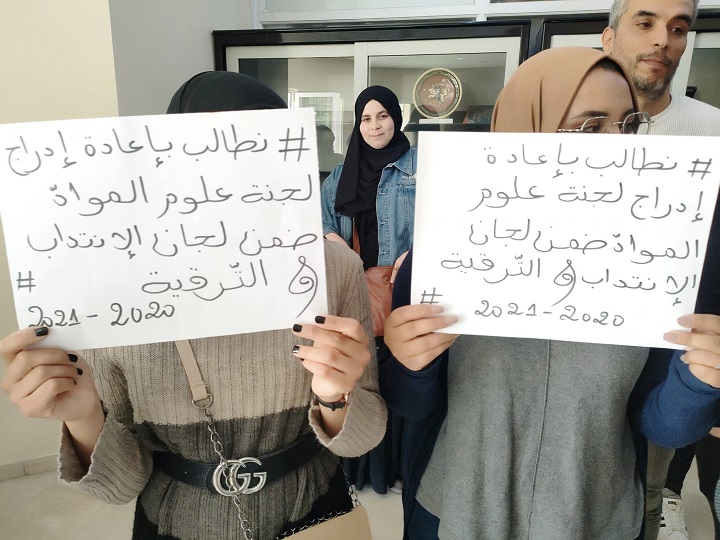 # نطالب بإعادة إدراج
لجنة علوم الموادّ
ضمن لجان الإنتداب
و التّرقية #
2020 - 2021
# نطالب بإعادة
إدراج لجنة علوم
الموادّ ضمن لجان
الإنتداب و التّرقية
2020 - 2021 #